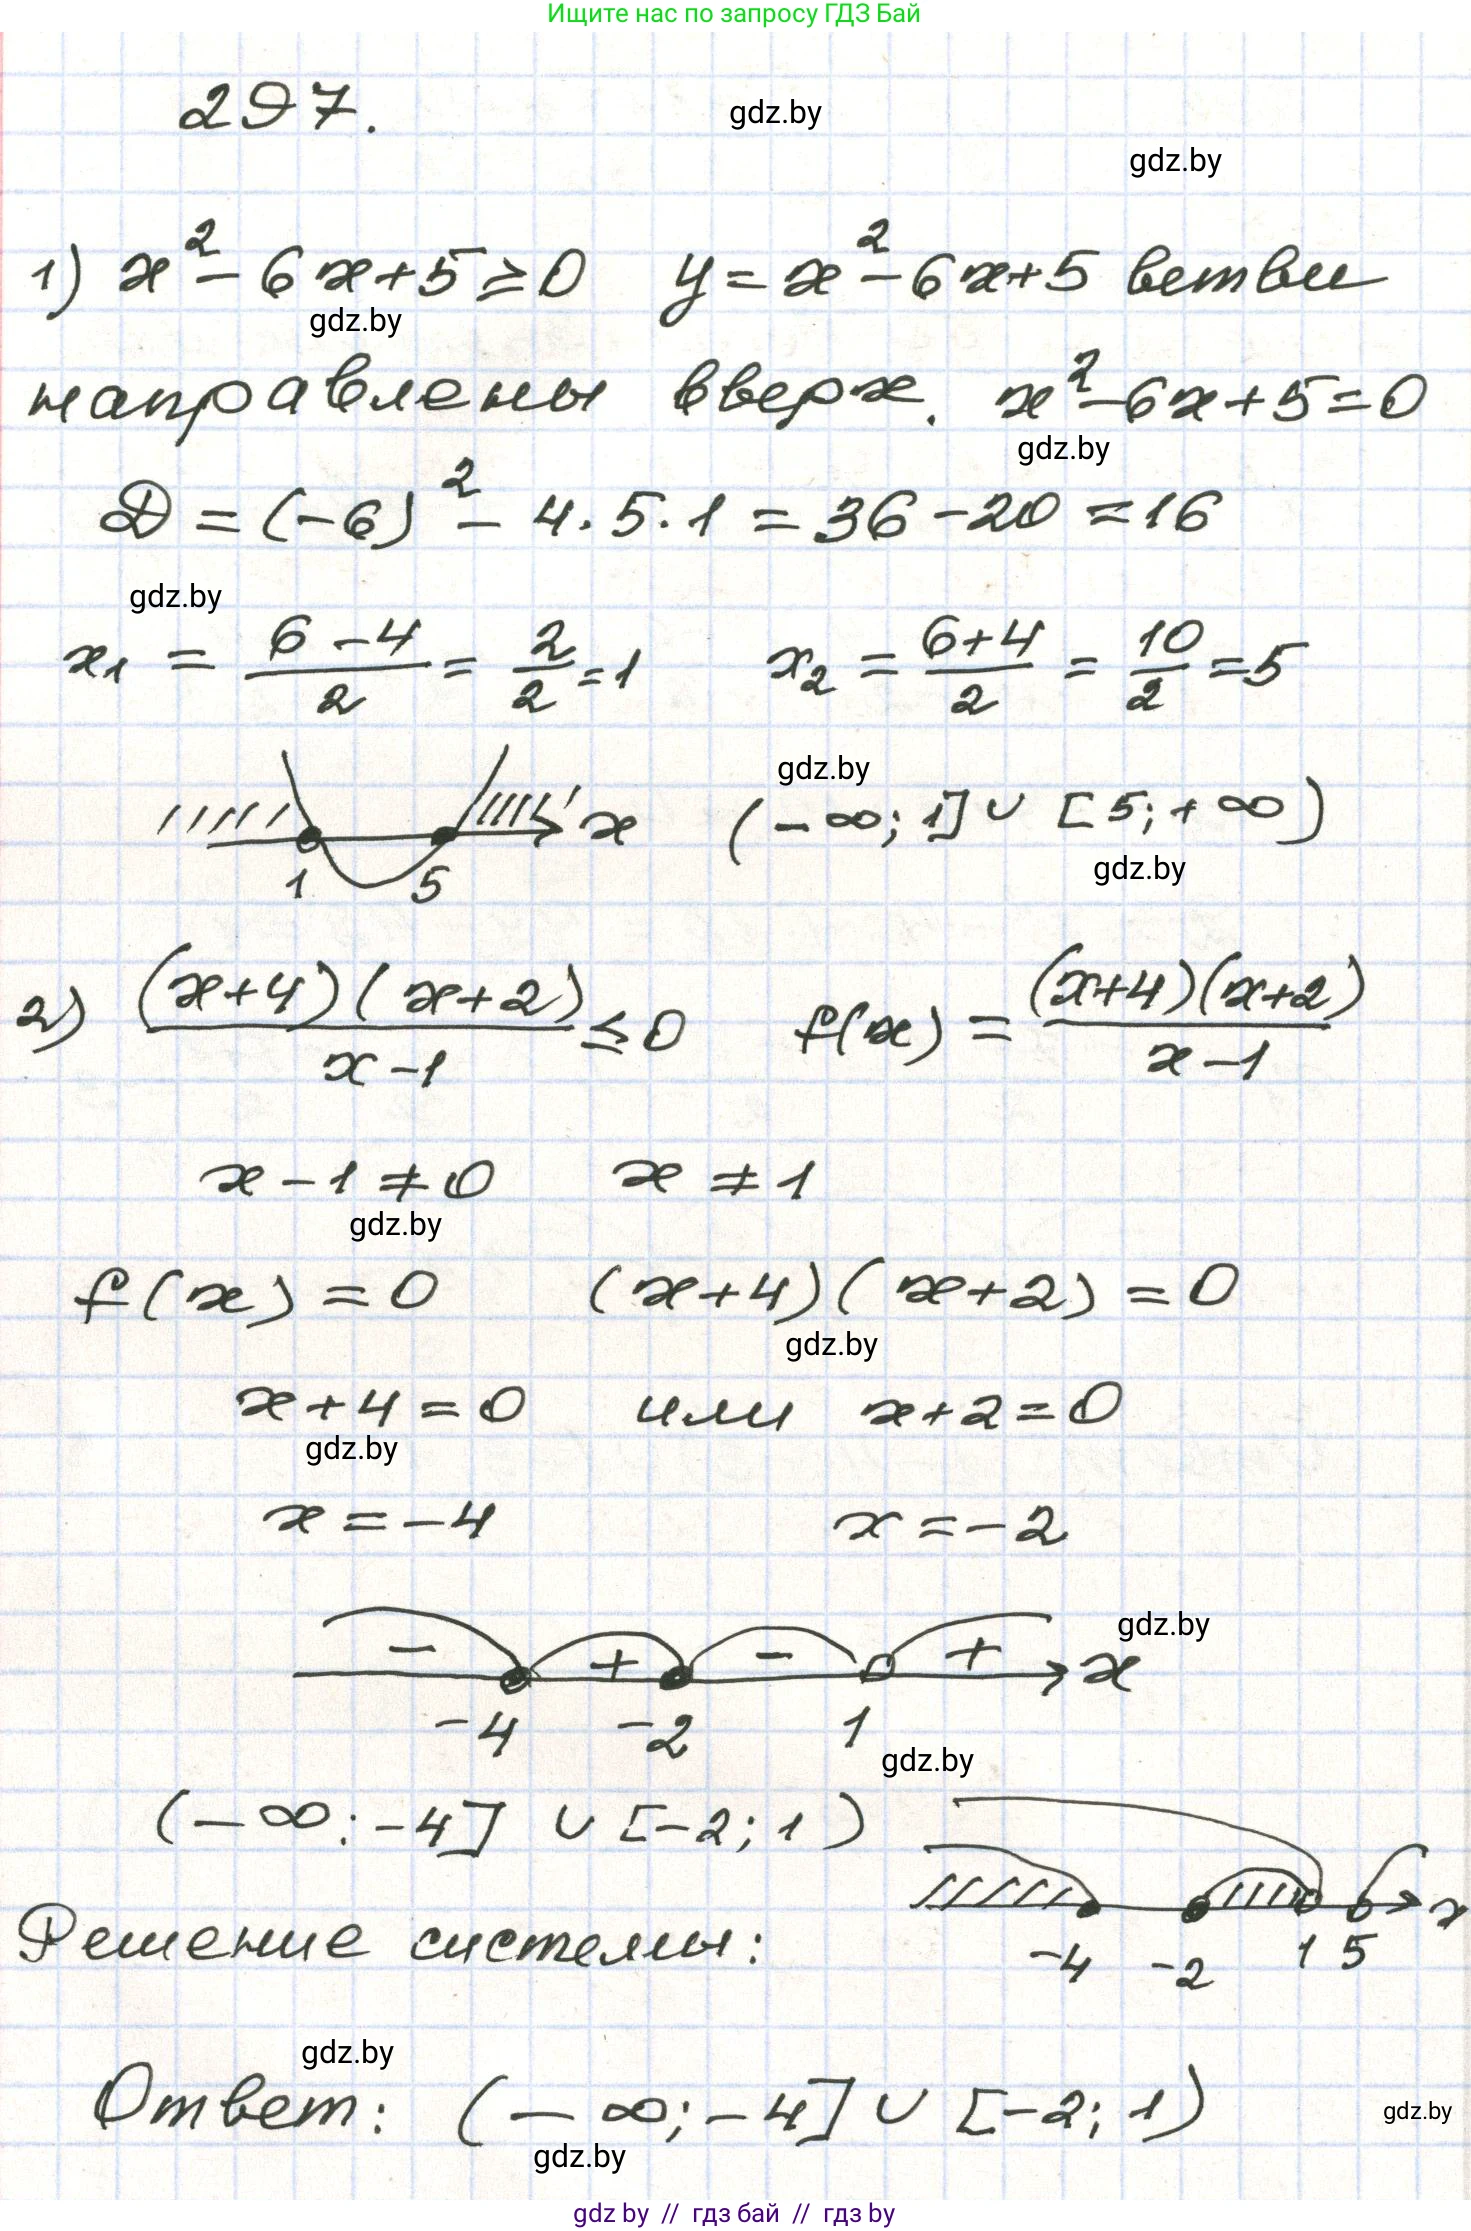 Ищите нас по запросу ГДЗ Бай
297.
gdz.by
gdz.by
1) x² - 6x+5 ≥ 0 y = x² - 6x+5 ветви
gdz.by
направлены вверх. x² - 6x+5=0
gdz.by
D = (-6)² - 4·5·1 = 36 - 20 = 16
gdz.by
x₁ = (6-4)/2 = 2/2 = 1 x₂ = (6+4)/2 = 10/2 = 5
gdz.by
x (-∞; 1] ∪ [5; +∞)
1 5
gdz.by
2) (x+4)(x+2)/(x-1) ≤ 0 f(x) = (x+4)(x+2)/(x-1)
x - 1 ≠ 0 x ≠ 1
gdz.by
f(x) = 0 (x+4)(x+2) = 0
gdz.by
x+4=0 или x+2=0
gdz.by
x = -4 x = -2
gdz.by
- + - + x
-4 -2 1
gdz.by
(-∞; -4] ∪ [-2; 1)
Решение системы: x
-4 -2 1 5
gdz.by
Ответ: (-∞; -4] ∪ [-2; 1)
gdz.by
gdz.by
gdz by // гдз бай // гдз by